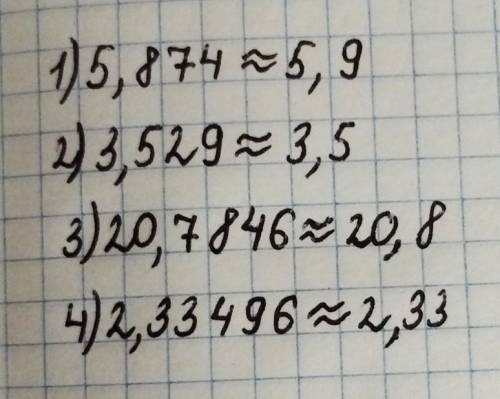 1) 5,874 ≈ 5,9
2) 3,529 ≈ 3,5
3) 20,7846 ≈ 20,8
4) 2,33496 ≈ 2,33